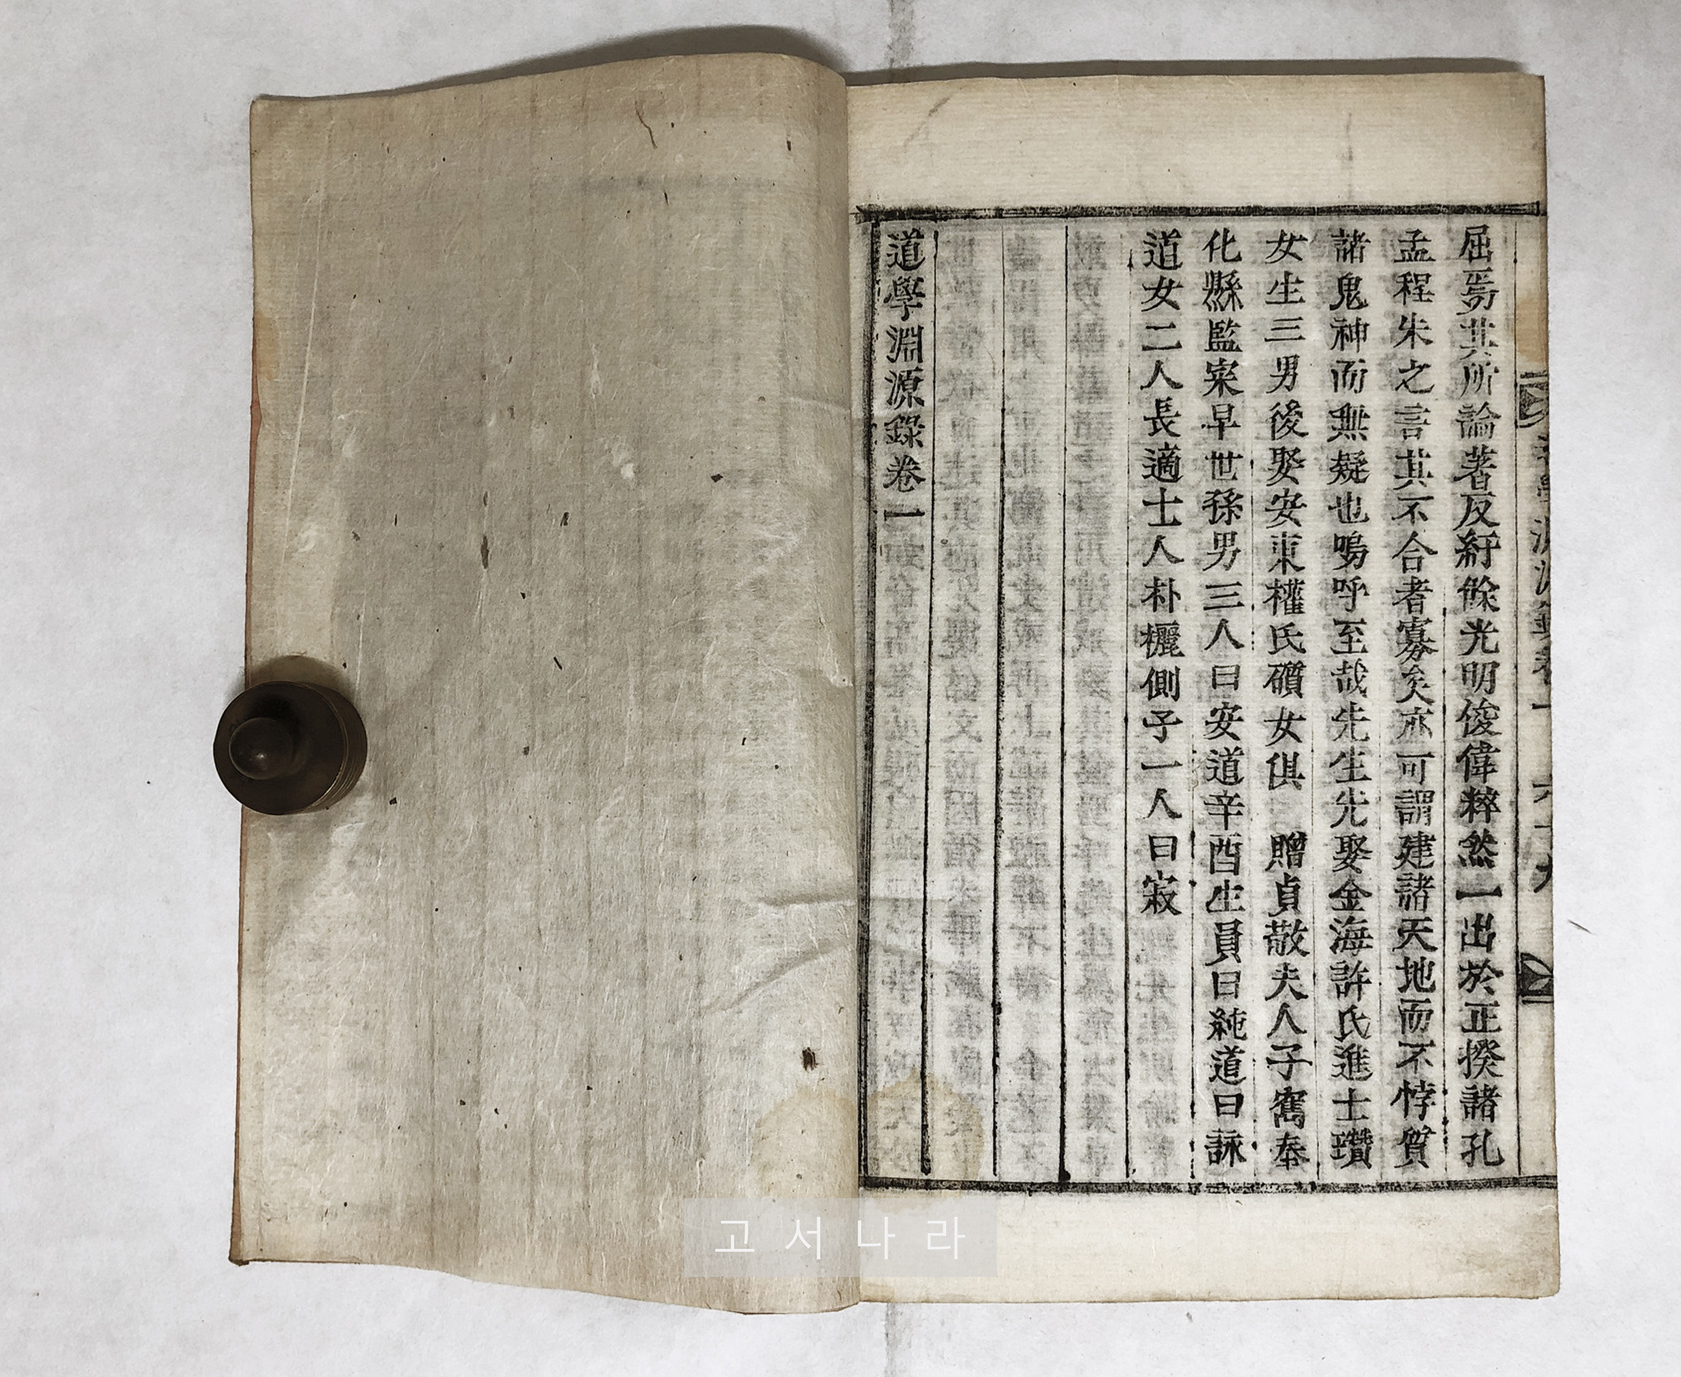 屈焉其所論著反紆餘光明俊偉粹然一出於正揆諸孔
孟程朱之言其不合者寡矣亦可謂建諸天地而不悖質
諸鬼神而無疑也嗚呼至哉先生先娶金海許氏進士瓚
女生三男後娶安東權氏礩女俱 贈貞敬夫人子寯奉
化縣監寀早世孫男三人曰安道辛酉生員曰純道曰詠
道女二人長適士人朴欐側子一人曰寂
道學淵源錄卷一
고서나라